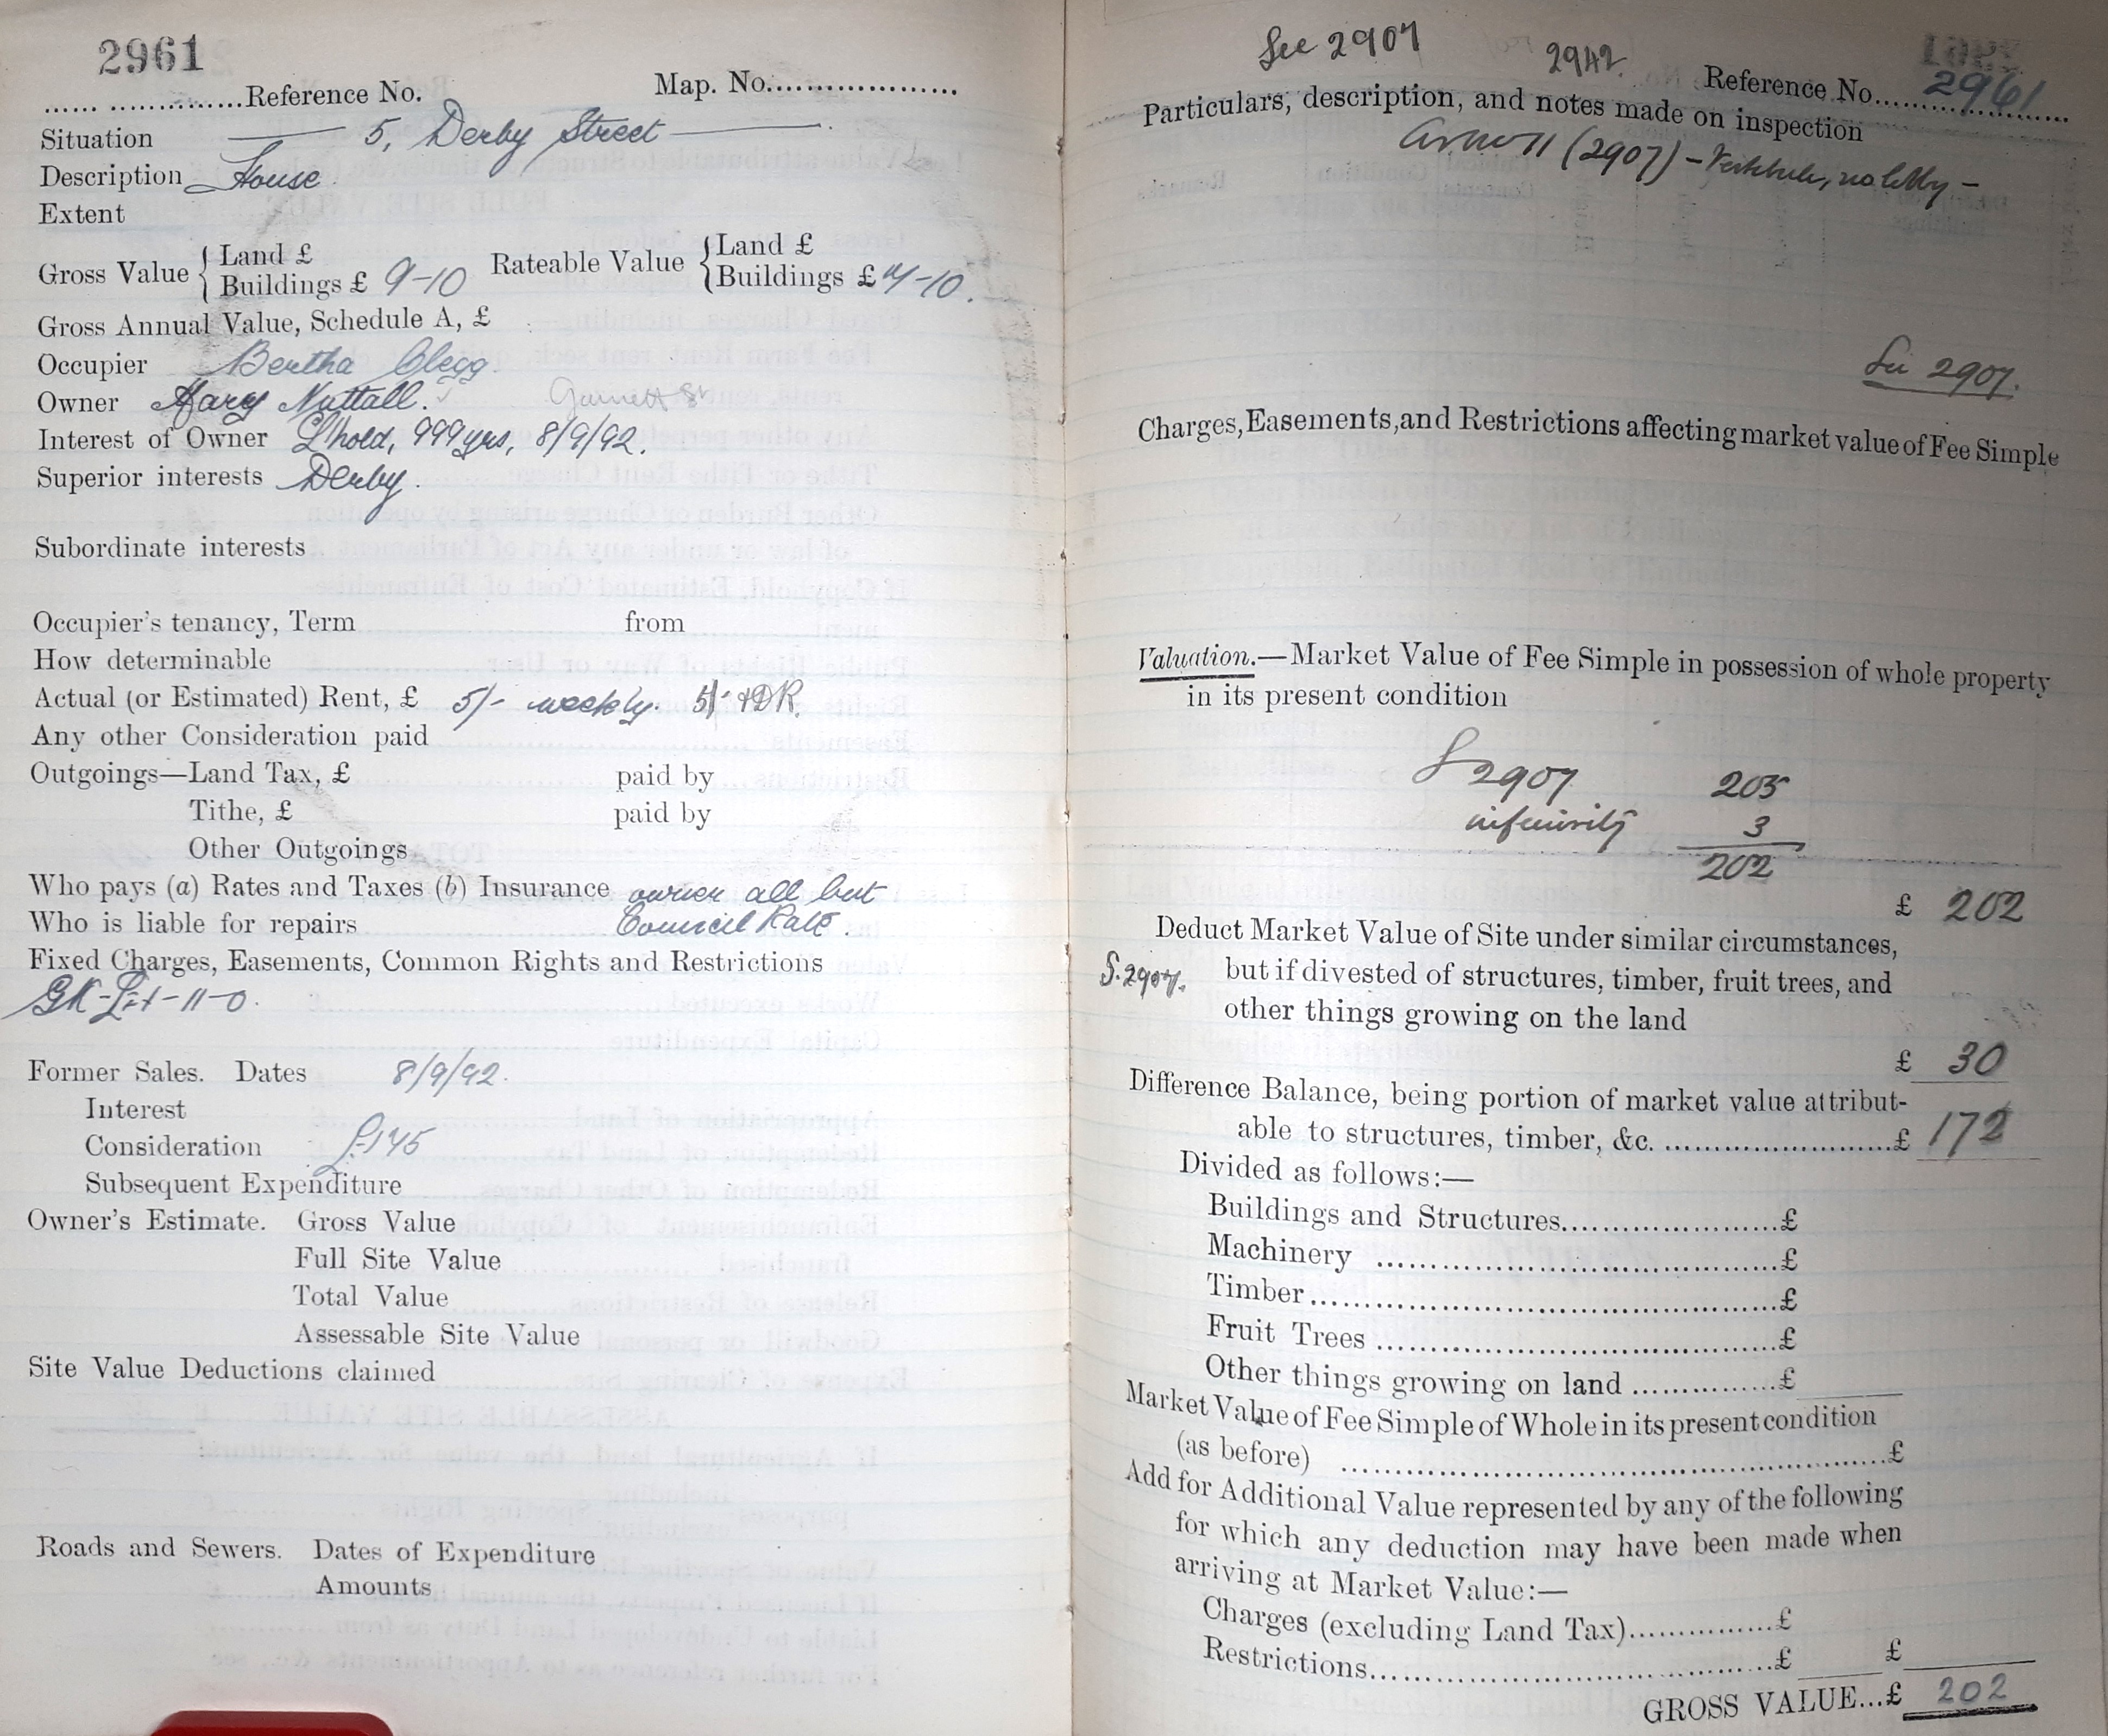 2961
...... ..............Reference No. Map. No....................
Situation —— 5, Derby Street ——
Description House
Extent
Gross Value { Land £
Buildings £ 9-10 Rateable Value { Land £
Buildings £ 7-10.
Gross Annual Value, Schedule A, £
Occupier Bertha Clegg
Owner Mary Nuttall. Garnett St
Interest of Owner L'hold, 999 yrs, 8/9/92.
Superior interests Derby.
Subordinate interests
Occupier's tenancy, Term from
How determinable
Actual (or Estimated) Rent, £ 5/- weekly. 5/- + DR.
Any other Consideration paid
Outgoings—Land Tax, £ paid by
Tithe, £ paid by
Other Outgoings
Who pays (a) Rates and Taxes (b) Insurance owner all but
Who is liable for repairs Council Rate.
Fixed Charges, Easements, Common Rights and Restrictions
-11-0.
Former Sales. Dates 8/9/92.
Interest
Consideration £175
Subsequent Expenditure
Owner's Estimate. Gross Value
Full Site Value
Total Value
Assessable Site Value
Site Value Deductions claimed
Roads and Sewers. Dates of Expenditure
Amounts
See 2907 2942.
Reference No. 2961
Particulars, description, and notes made on inspection
(2907) – Vestibule, no lobby –
See 2907.
Charges, Easements, and Restrictions affecting market value of Fee Simple
Valuation.—Market Value of Fee Simple in possession of whole property
in its present condition
S 2907 205
inferiority 3
202
£ 202
Deduct Market Value of Site under similar circumstances,
S. 2907. but if divested of structures, timber, fruit trees, and
other things growing on the land
£ 30
Difference Balance, being portion of market value attribut-
able to structures, timber, &c. .........................£ 172
Divided as follows:—
Buildings and Structures.......................£
Machinery ..........................................£
Timber................................................£
Fruit Trees ..........................................£
Other things growing on land ...............£
Market Value of Fee Simple of Whole in its present condition
(as before) ........................................................£
Add for Additional Value represented by any of the following
for which any deduction may have been made when
arriving at Market Value:—
Charges (excluding Land Tax)...............£
Restrictions..........................................£ £
GROSS VALUE...£ 202